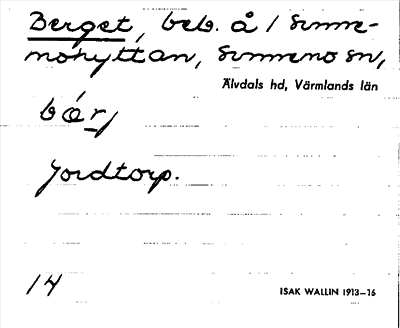 Berget, beb. å 1 Sunne-
mohyttan, Sunnemo sn,
Älvdals hd, Värmlands län
Jordtorp.
14
ISAK WALLIN 1913–16